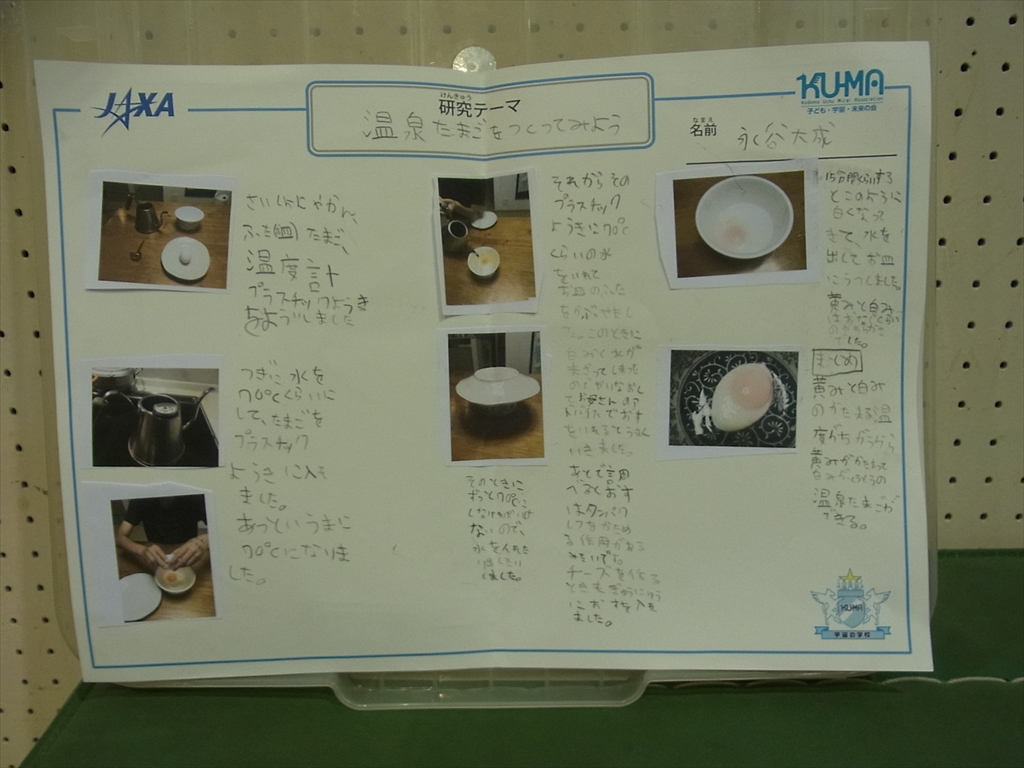 JAXA
けんきゅう
研究テーマ
温泉たまごをつくってみよう
KU-MA
子ども・宇宙・未来の会
なまえ
名前
永谷大成
さいしょにやかん、
ふた(皿)たまご、
温度計
プラスチックようき
をよういしました
つぎに水を
70℃くらいに
して、たまごを
プラスチック
ようきに入れ
ました。
あっというまに
70℃になりま
した。
それからその
プラスチック
ようきに70℃
くらいの水
を入れて
お皿のふた
このときに
いきました。
そのときに
ずっと70℃に
しなければいけ
ないので、
水を入れた
りはしたり
しました。
あとで調
べるとおす
はタンパク
しつをかため
る作用がある
みたいです。
チーズを作る
ときもぎゅうにゅう
におすを入れ
ました。
15分間くらいする
とこのように
白くなって
きて、水を
出してお皿
にうつしました。
黄みと白み
でした。
まとめ
黄みと白み
のかたまる温
度がちがうから
黄みがかたまって
温泉たまごが
できる。
KU-MA
宇宙の学校